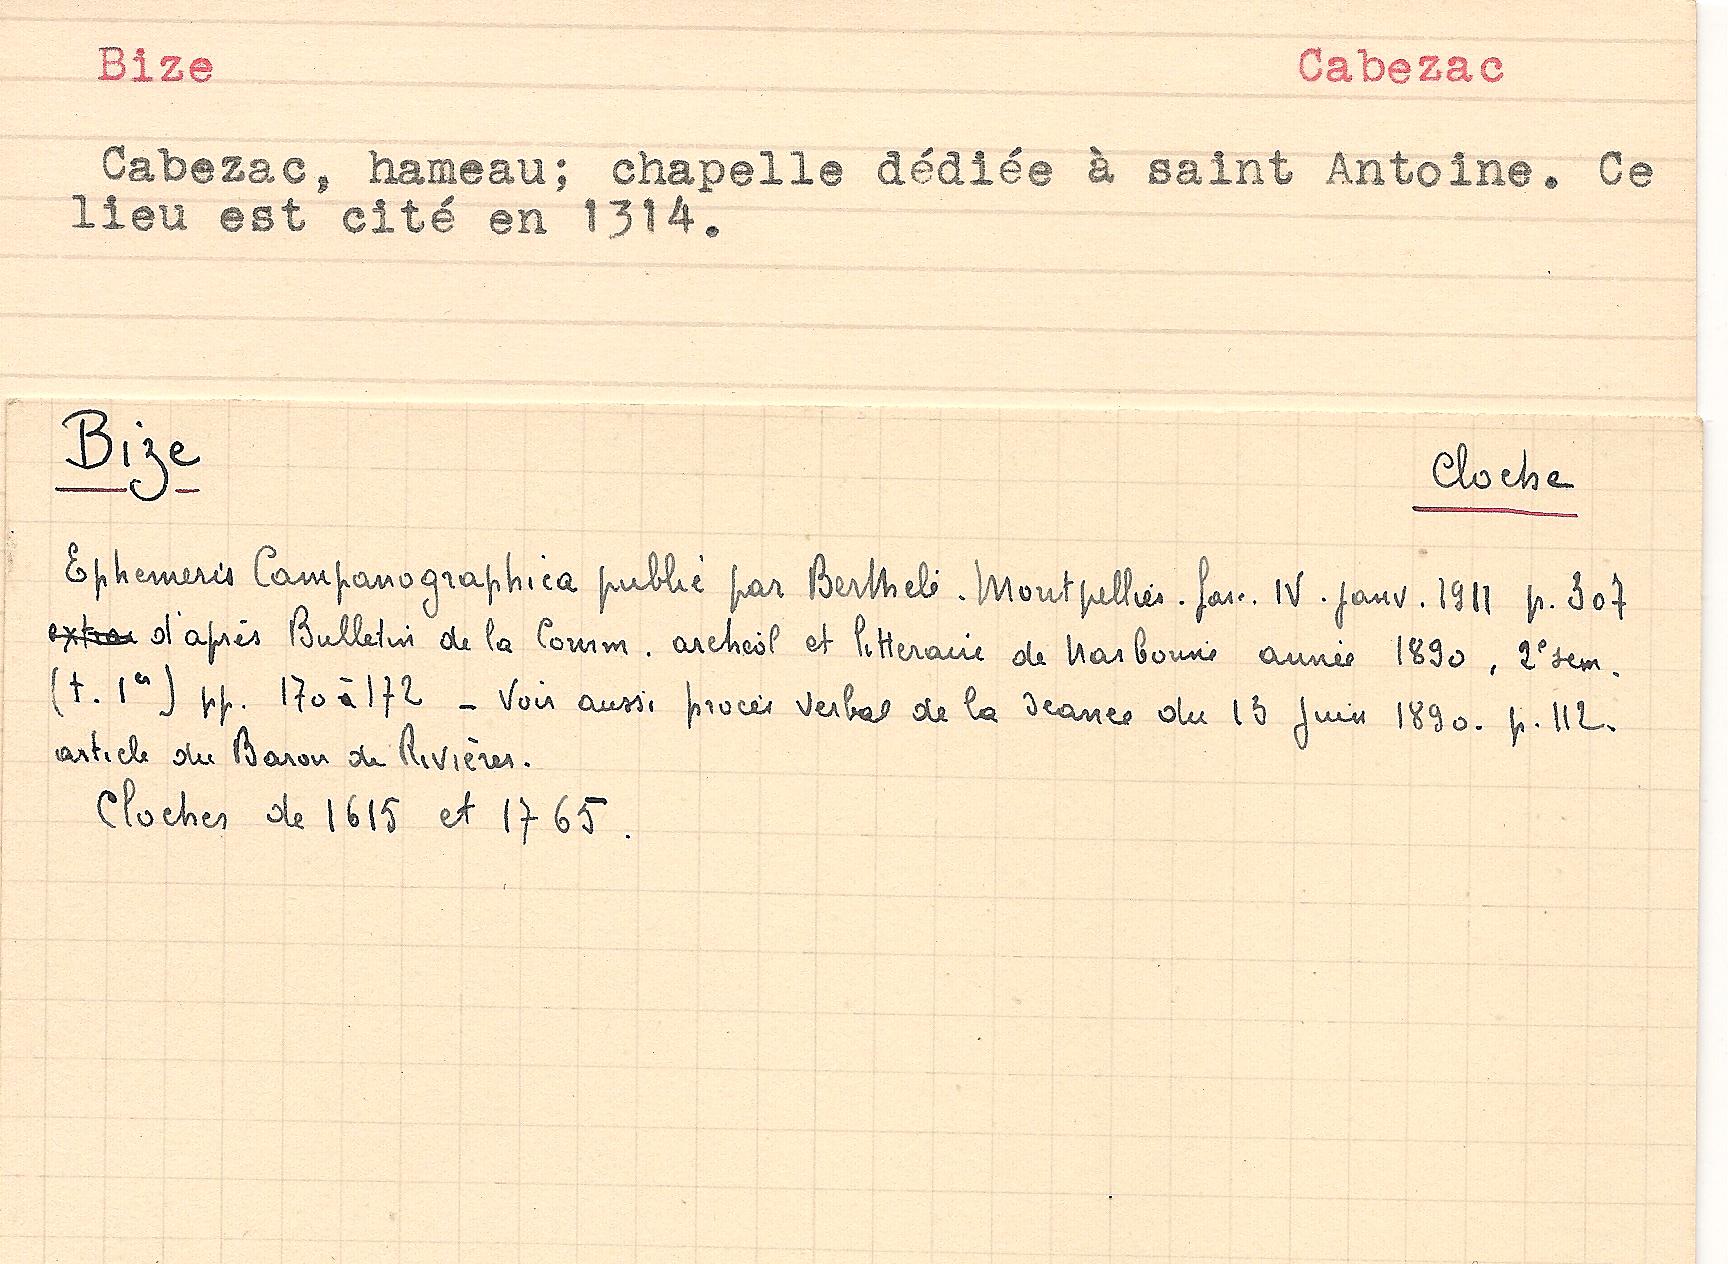 Bize Cabezac
Cabezac, hameau; chapelle dédiée à saint Antoine. Ce
lieu est cité en 1314.
Bize Cloche
Ephemeris Campanographica publié par Berthelé. Montpellier. fasc. IV. janv. 1911 p. 307
d'après Bulletin de la Comm. archéol et litteraire de Narbonne année 1890, 2e sem.
(t. 1er) pp. 170 à 172 - Voir aussi procès verbal de la séance du 13 Juin 1890. p. 112.
article du Baron de Rivières.
Cloches de 1615 et 1765.